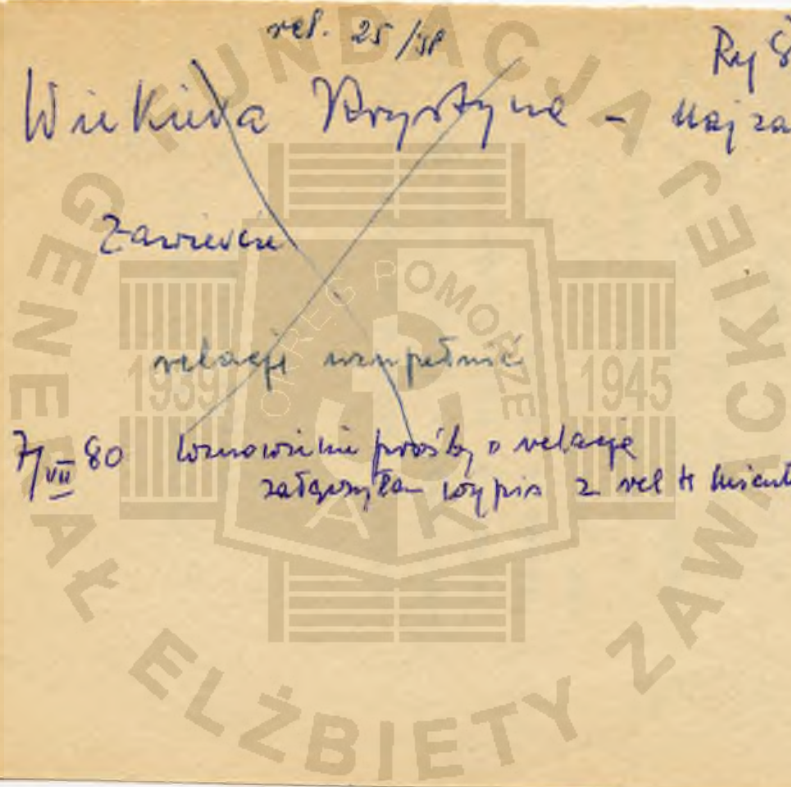 rel. 25/
Ry 8
Wiekiera Krystyna - Majza
Zawiercie
relację uzupełnić
7/VII 80 wznowienie prośby o relację
załączyłam wypis z rel H
FUNDACJA GENERAŁ ELŻBIETY ZAWACKIEJ
OKRĘG POMORZE
1939 1945
AK